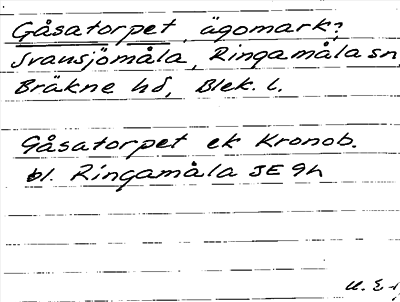 Gåsatorpet, ägomark?
Svansjömåla, Ringamåla sn,
Bräkne hd, Blek. l.
Gåsatorpet ek Kronob.
bl. Ringamåla 3E 9h